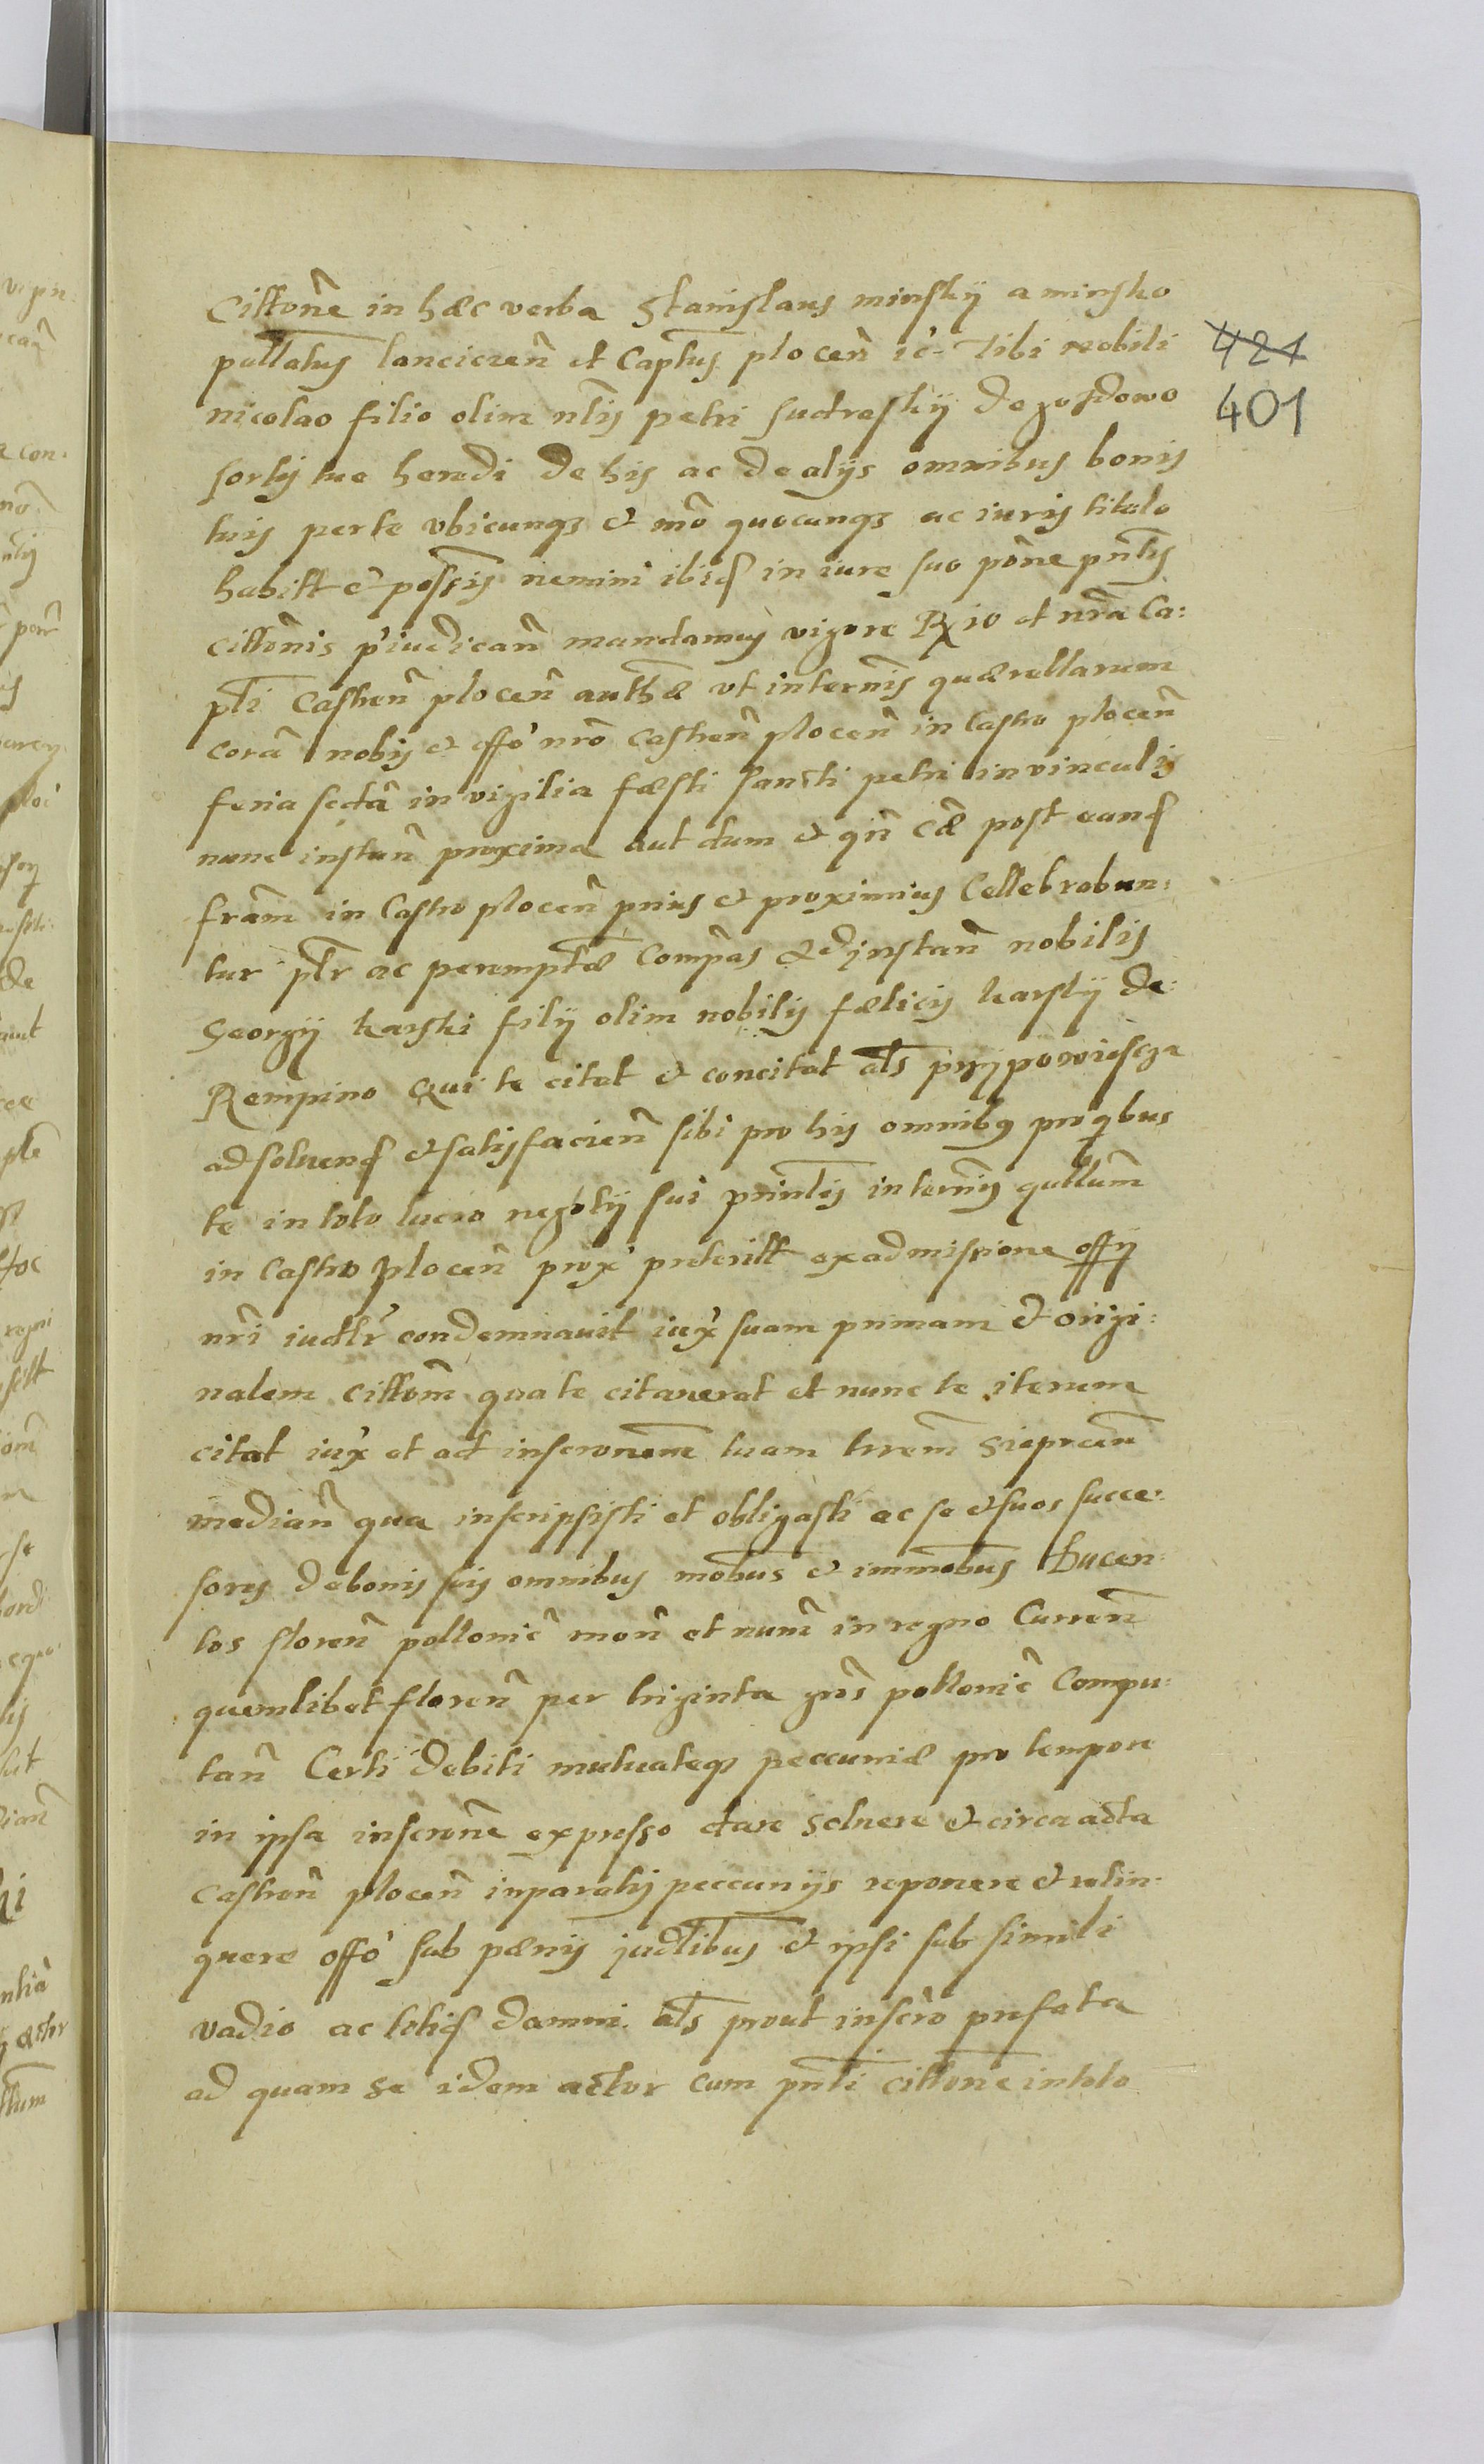 Cittone in hæc verba Stanislaus minskij a minsko
pallatus lancicien et Captus plocen ić Tibi nobili
421
nicolao filio olim nlis petri sudraskij de gozdowo
401
sortis tue heredi de his ac de alijs omnibus bonis
tuis per te vbicunqз et mō quocunqз ac iuris titulo
habitt et possis nemini ibid in iure suo pōne pntis
cittonis p'iudican mandamus vigore Rgio et nra Ca:
pti Castren plocen authæ vt in termis quærellarum
corā nobis et offō nrō castren plocen in Castro plocen
feria sectā in vigilia fæsti sancti petri in vinculis
nunc instan proxima aut dum et qn cæ post eand
fram in Castro plocen prius et proximius Cellebrabun:
tur ptr ac peremptæ Compas ad instan nobilis
Georgij karski filij olim nobilis fælicis karskij de
Rempino Qui te citat et concitat als przypowiescza
ad soluend et satisfacien sibi pro his omnibus pro qbus
te in toto lucro negotij sui pnntis in termis qullum
in Castro plocen prox preteritt ex admissione offij
nri iudlr condemnauit iux suam primam et origi:
nalem cittom qua te citauerat et nunc te iterum
citat iux et ad inscronem tuam trrem Sieprcen
median qua inscripsisti et obligasti ac se et suos succe:
sores de bonis suis omnibus mobus et immobus Ducen:
tos floren pollonic mon et num in regno Curren
quemlibet floren per triginta grs pollonic Compu:
tan Certi debiti mutuateqз peccuniæ pro tempore
in ipsa inscrone expresso dare soluere et circa acta
castren plocen in paratis peccunijs reponere et relin:
quere offō sub pænis judlibus et ipsi sub simili
vadio ac totid damni als prout inscro prefata
ad quam se idem actor cum pnti cittone in toto